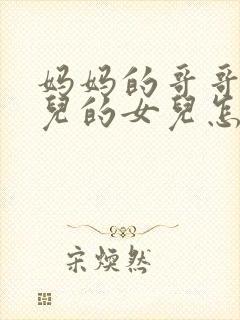 妈妈的哥哥
兒的女兒怎
宋焕然